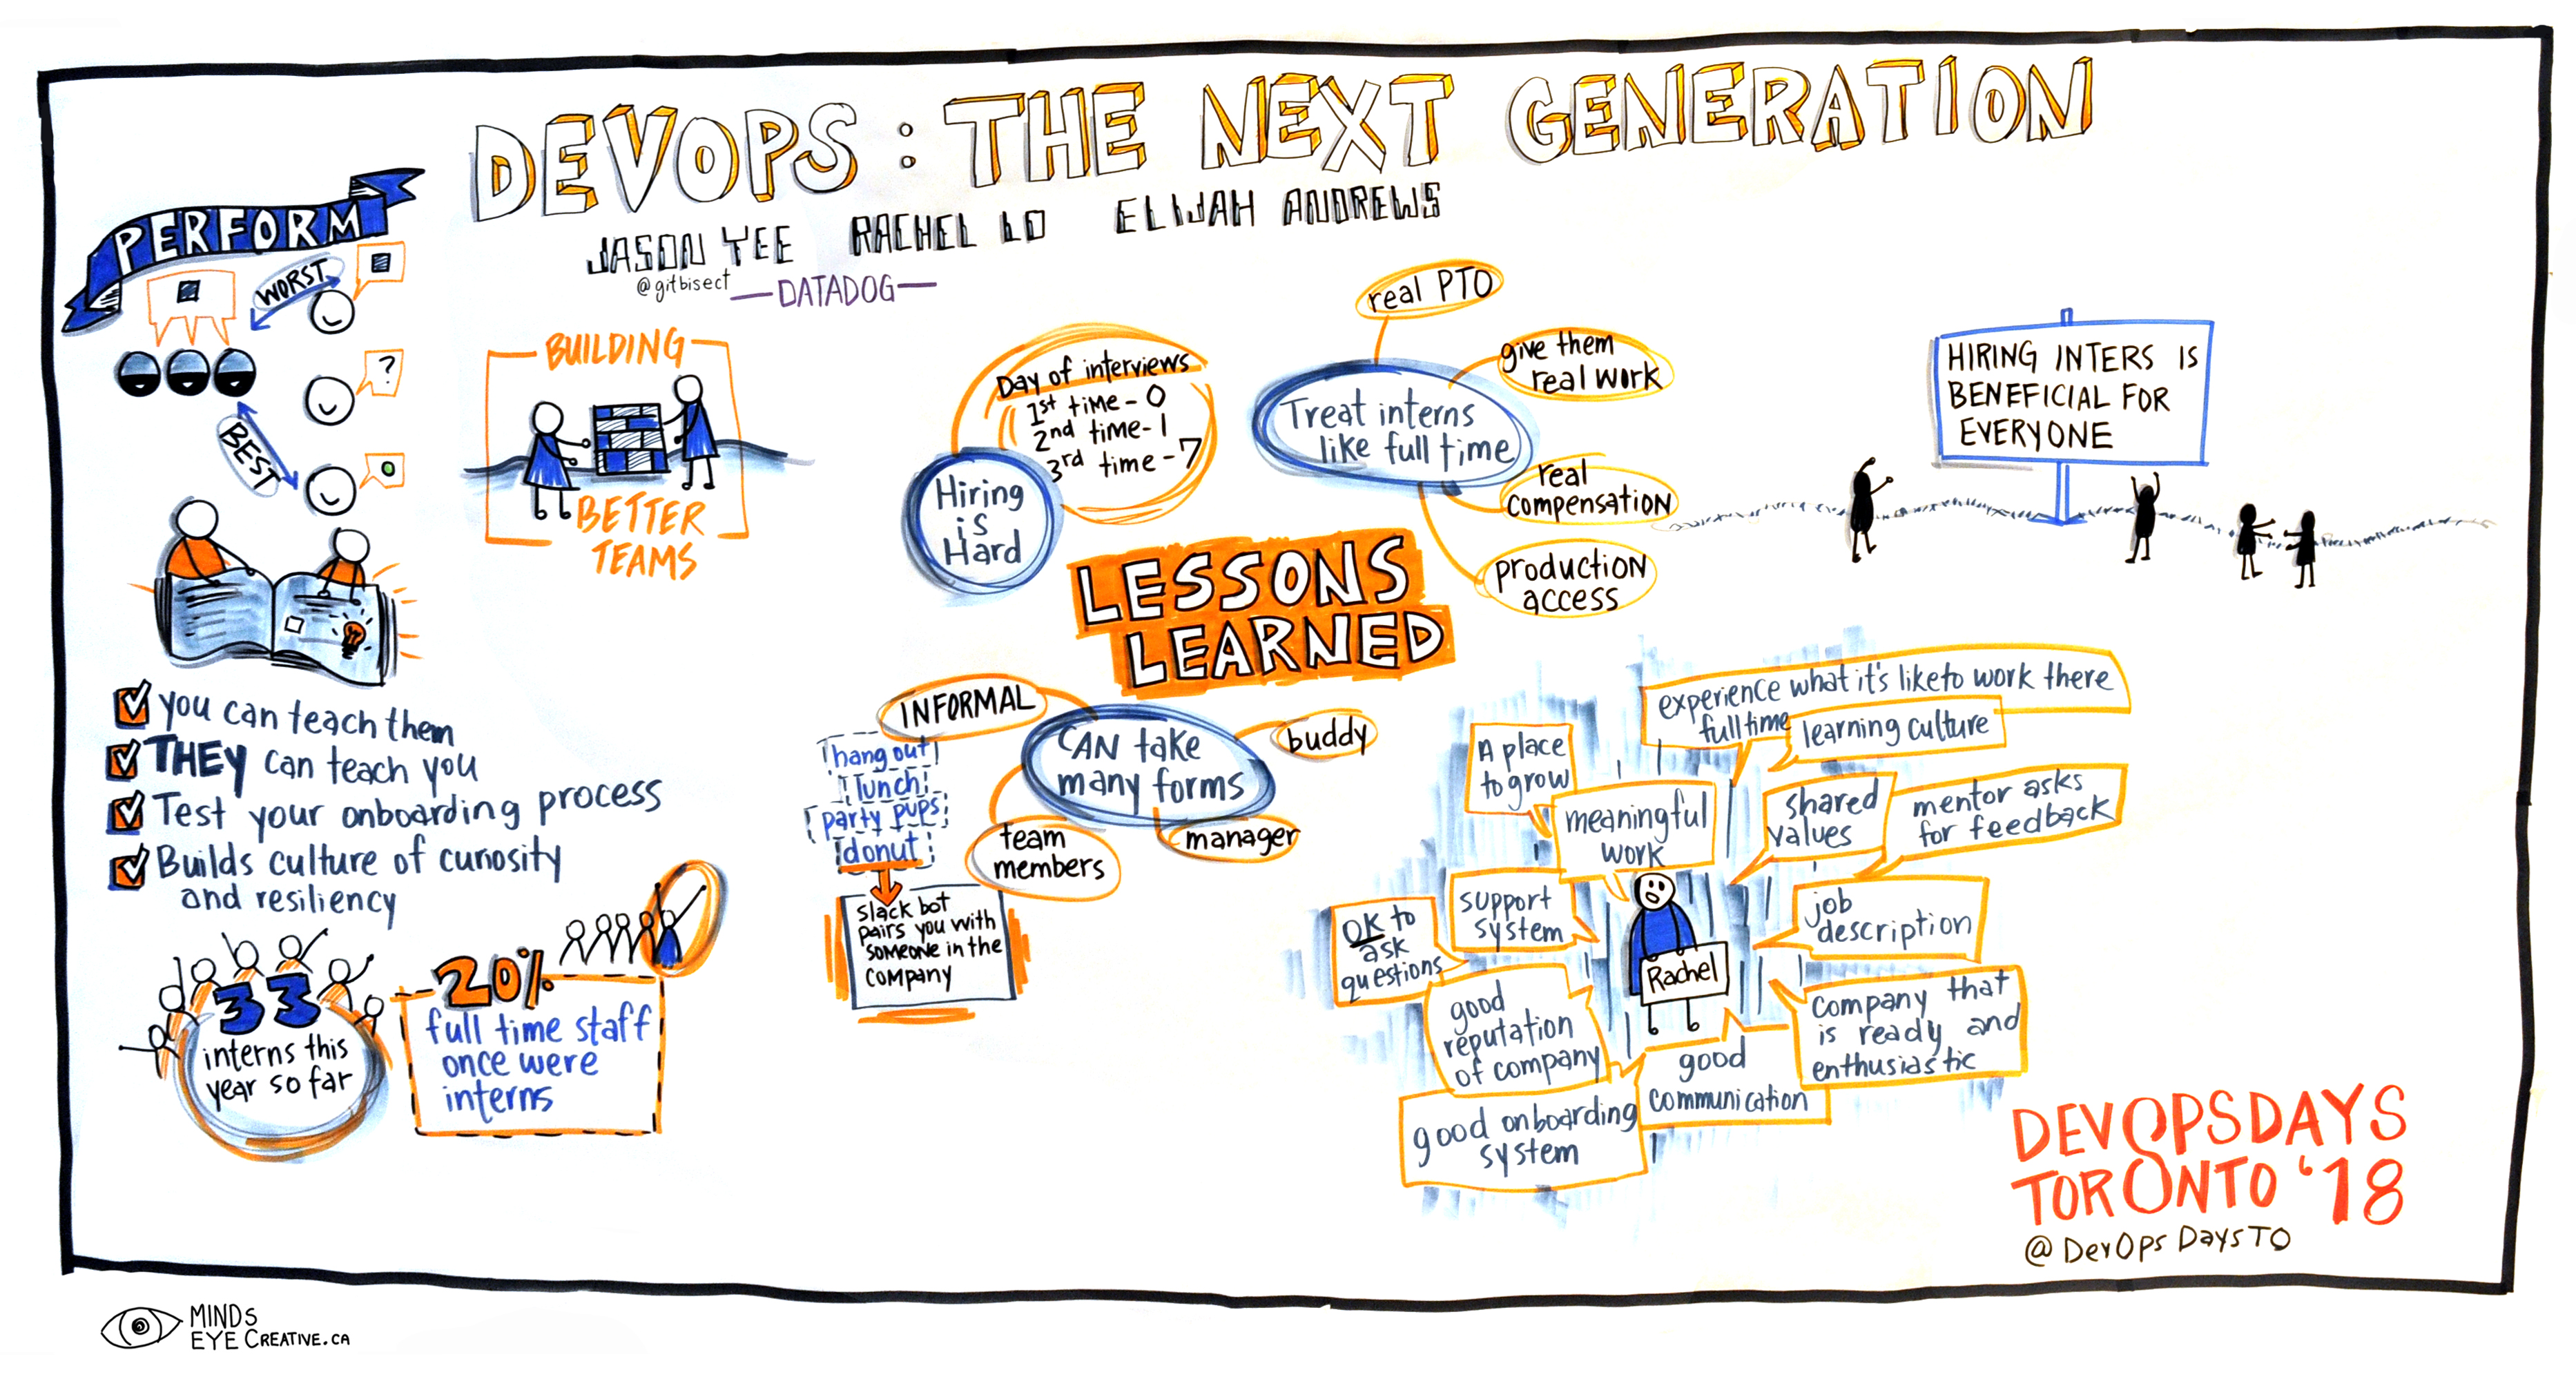 DEVOPS : THE NEXT GENERATION
JASON YEE RACHEL LO ELIJAH ANDREWS
@gitbisect
—DATADOG—
PERFORM
WORST
?
BEST
you can teach them
THEY can teach you
Test your onboarding process
Builds culture of curiosity
and resiliency
33
interns this
year so far
20%
full time staff
once were
interns
BUILDING
BETTER
TEAMS
LESSONS
LEARNED
Hiring
is
Hard
Day of interviews
1st time - 0
2nd time - 1
3rd time - 7
Treat interns
like full time
real PTO
give them
real work
real
compensation
production
access
CAN take
many forms
INFORMAL
hang out
lunch
party pups
donut
slack bot
pairs you with
someone in the
company
team
members
manager
buddy
HIRING INTERS IS
BENEFICIAL FOR
EVERYONE
experience what it's like to work there
full time
learning culture
A place
to grow
meaningful
work
shared
values
mentor asks
for feedback
support
system
OK to
ask
questions
job
description
Rachel
good
reputation
of company
company that
is ready and
enthusiastic
good
communication
good onboarding
system
DEVOPSDAYS
TORONTO '18
@DevOpsDaysTO
MINDS
EYE CREATIVE.CA